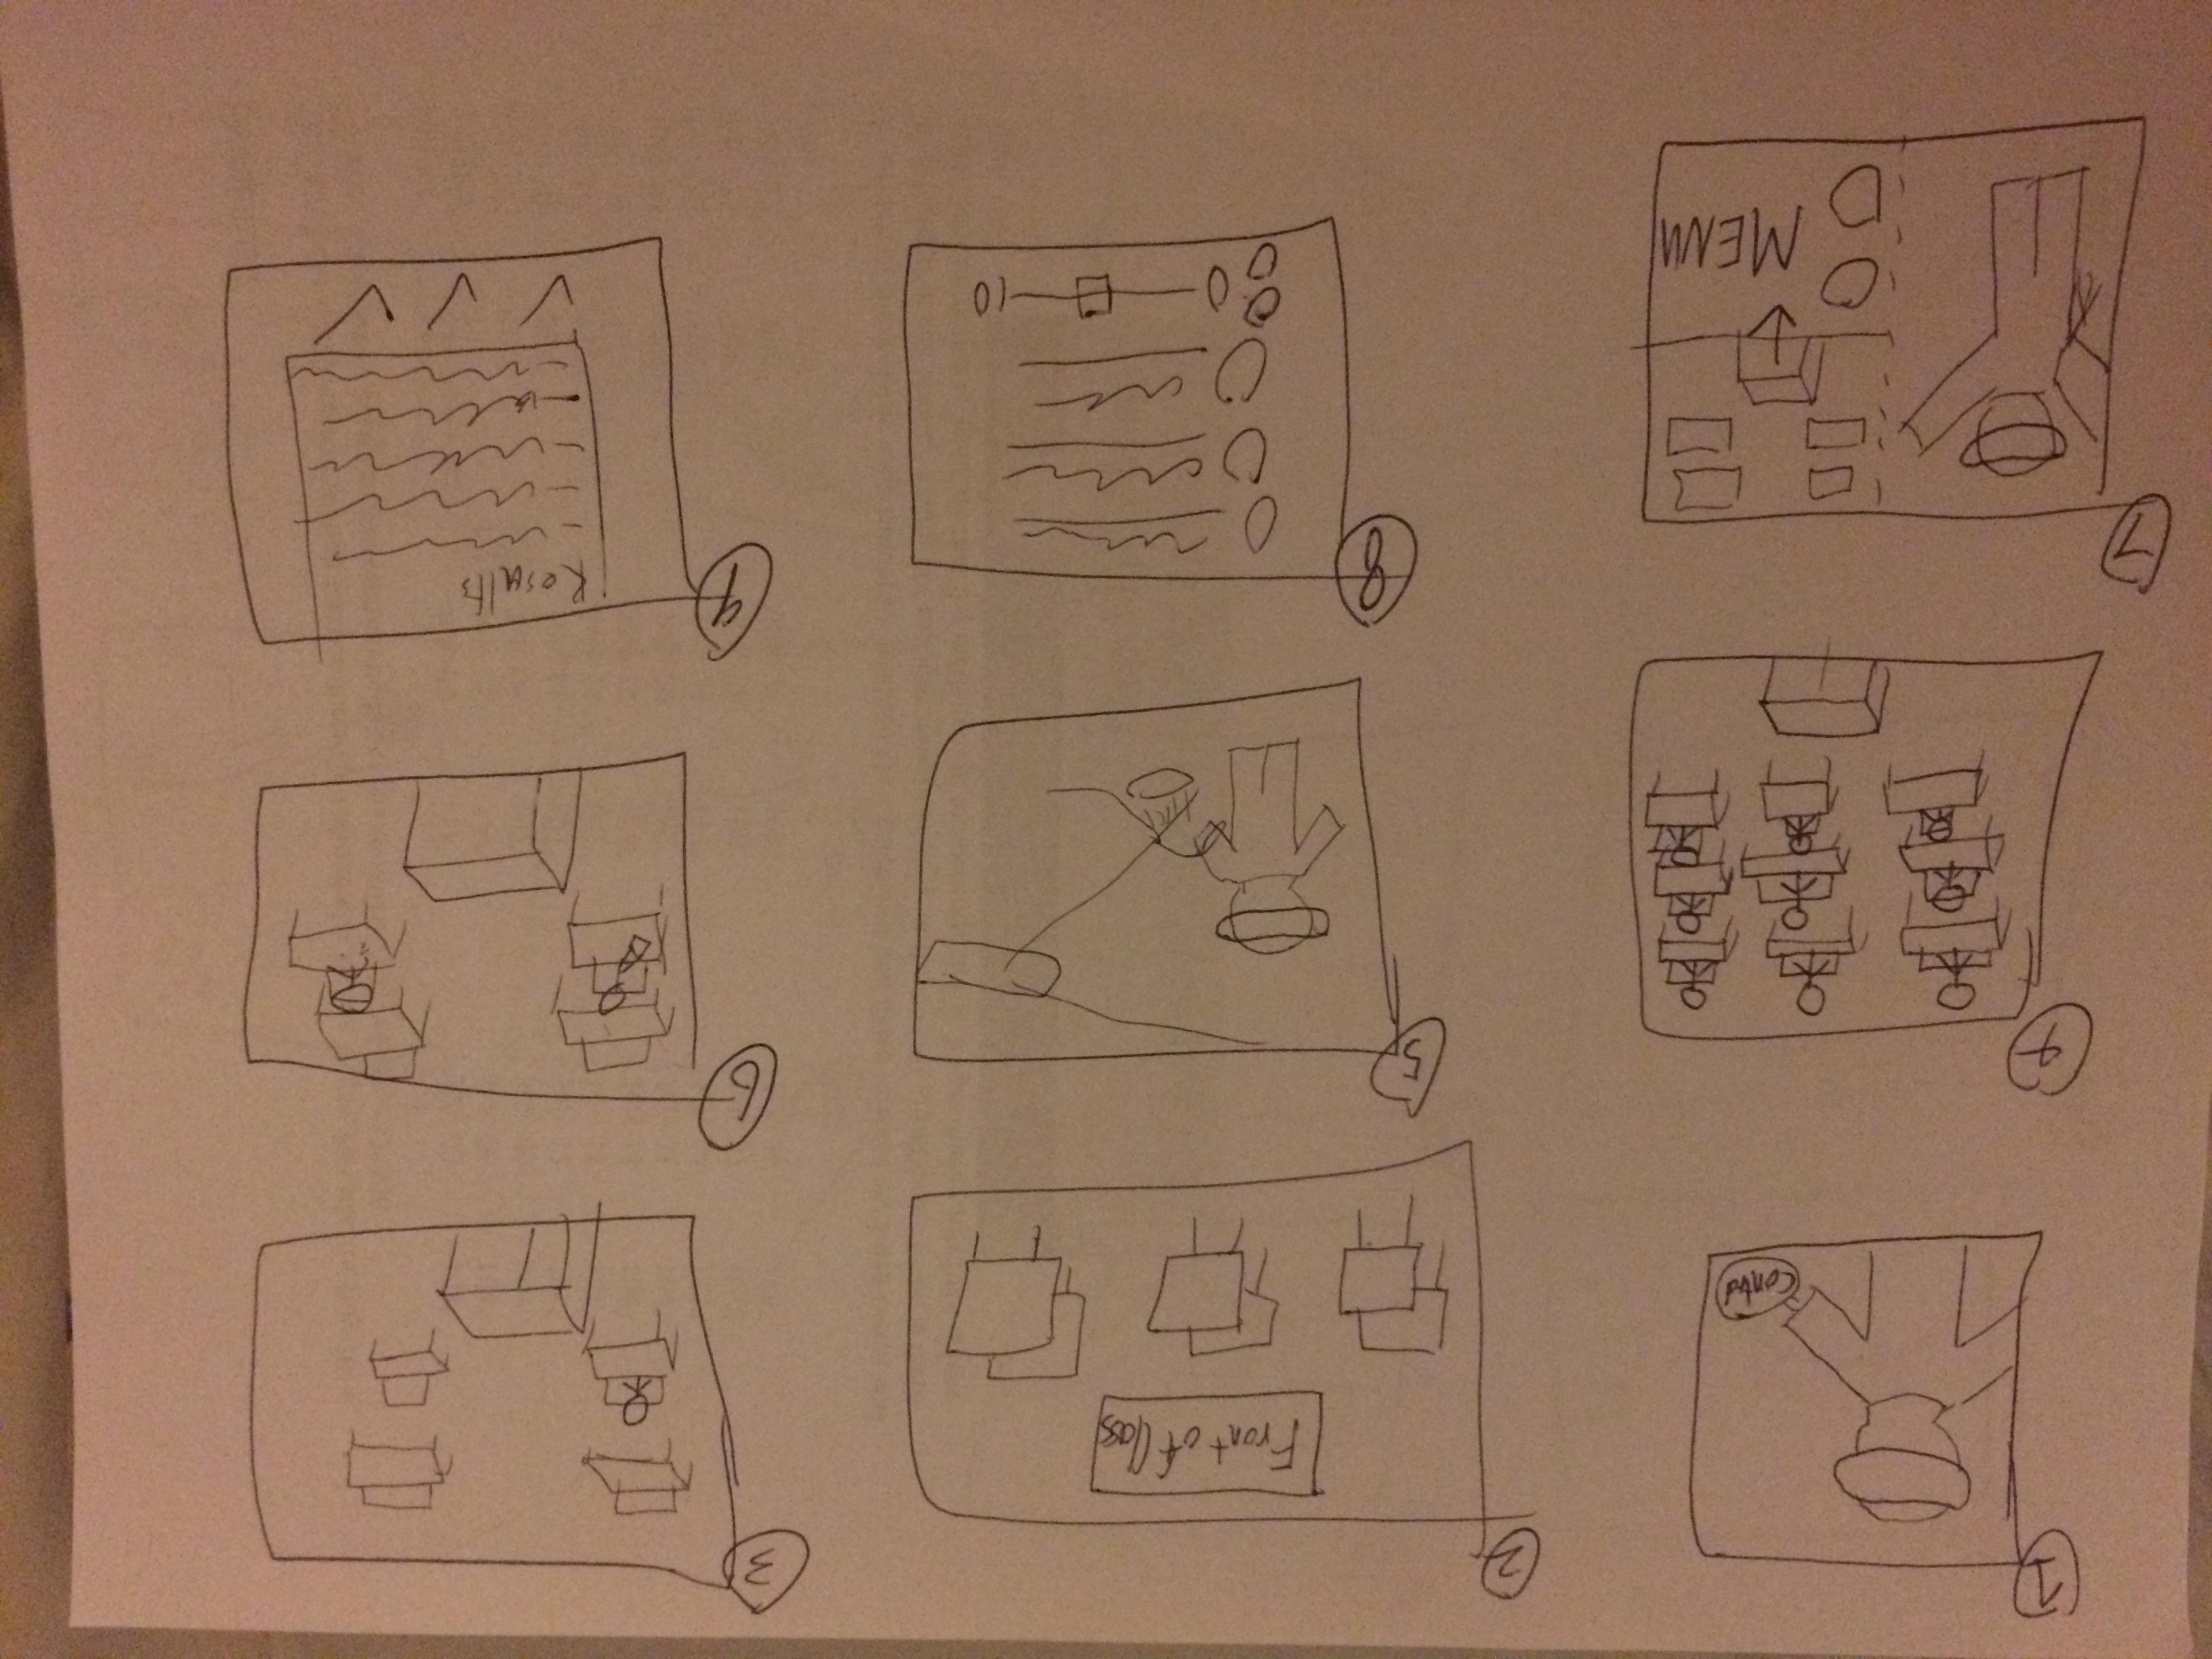 1
Control
2
Front of Class
3
4
5
6
7
MENU
8
0 10
9
Results